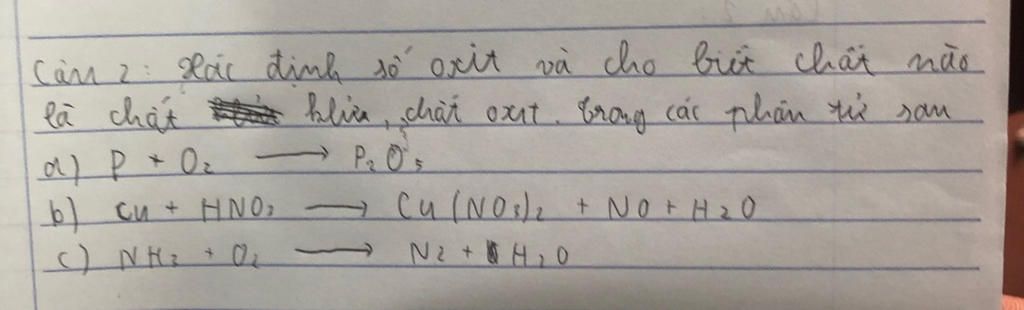 Câu 2: Xác định số oxit và cho biết chất nào
là chất khử, chất oxit. trong các phân tử sau
a) P + O₂ ⟶ P₂O₅
b) Cu + HNO₃ ⟶ Cu(NO₃)₂ + NO + H₂O
c) NH₃ + O₂ ⟶ N₂ + H₂O